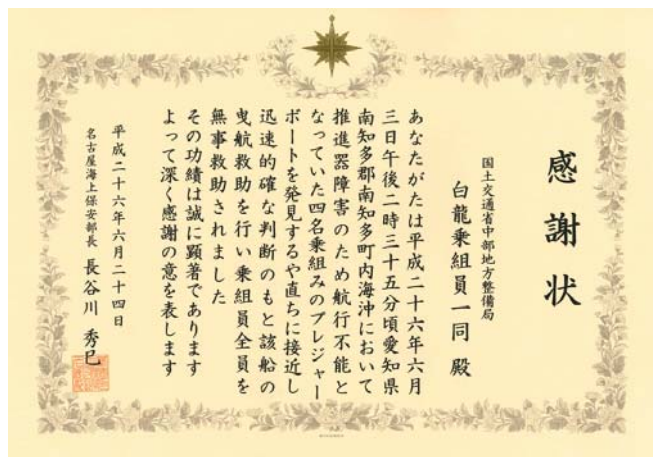 感謝状
国土交通省中部地方整備局
白龍乗組員一同 殿
あなたがたは平成二十六年六月
三日午後二時三十五分頃愛知県
南知多郡南知多町内海沖において
推進器障害のため航行不能と
なっていた四名乗組みのプレジャー
ボートを発見するや直ちに接近し
迅速的確な判断のもと該船の
曳航救助を行い乗組員全員を
無事救助されました
その功績は誠に顕著であります
よって深く感謝の意を表します
平成二十六年六月二十四日
名古屋海上保安部長 長谷川 秀巳